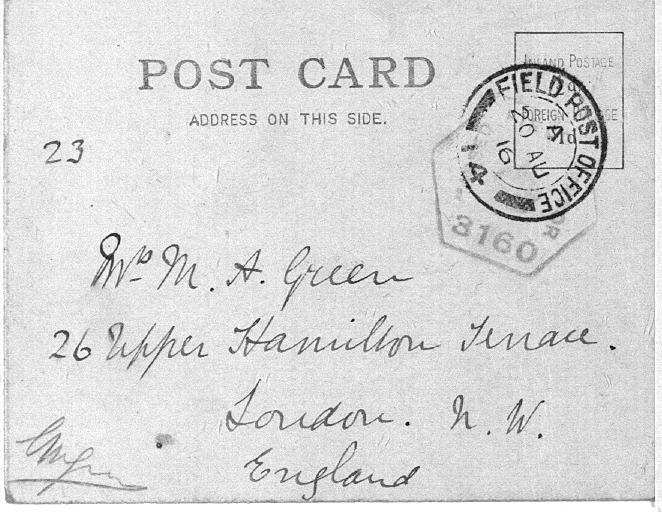 POST CARD
ADDRESS ON THIS SIDE.
INLAND POSTAGE
FOREIGN
1d
FIELD POST OFFICE
41
A
20 AU
16
3160
23
Mrs M. A. Green
26 Upper Hamilton Terrace.
London. N. W.
England